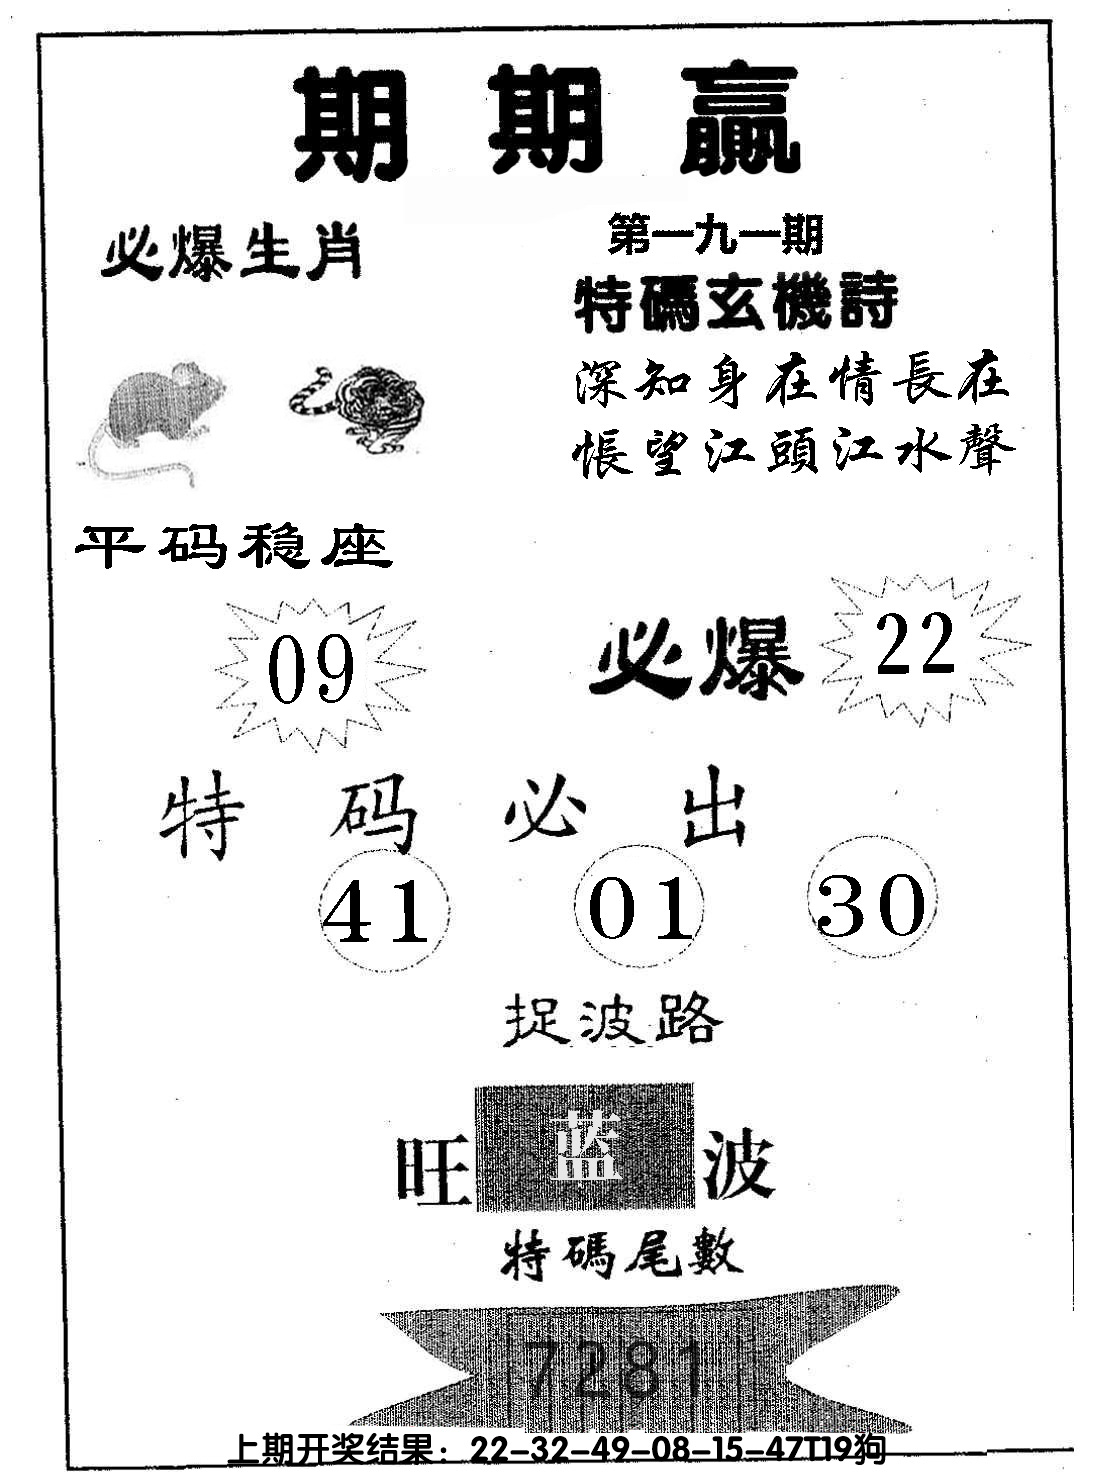 期期赢
必爆生肖
第一九一期
特碼玄機詩
深知身在情長在
悵望江頭江水聲
平码稳座
09
必爆 22
特码必出
41 01 30
捉波路
旺 蓝 波
特碼尾數
7281
上期开奖结果：22-32-49-08-15-47T19狗